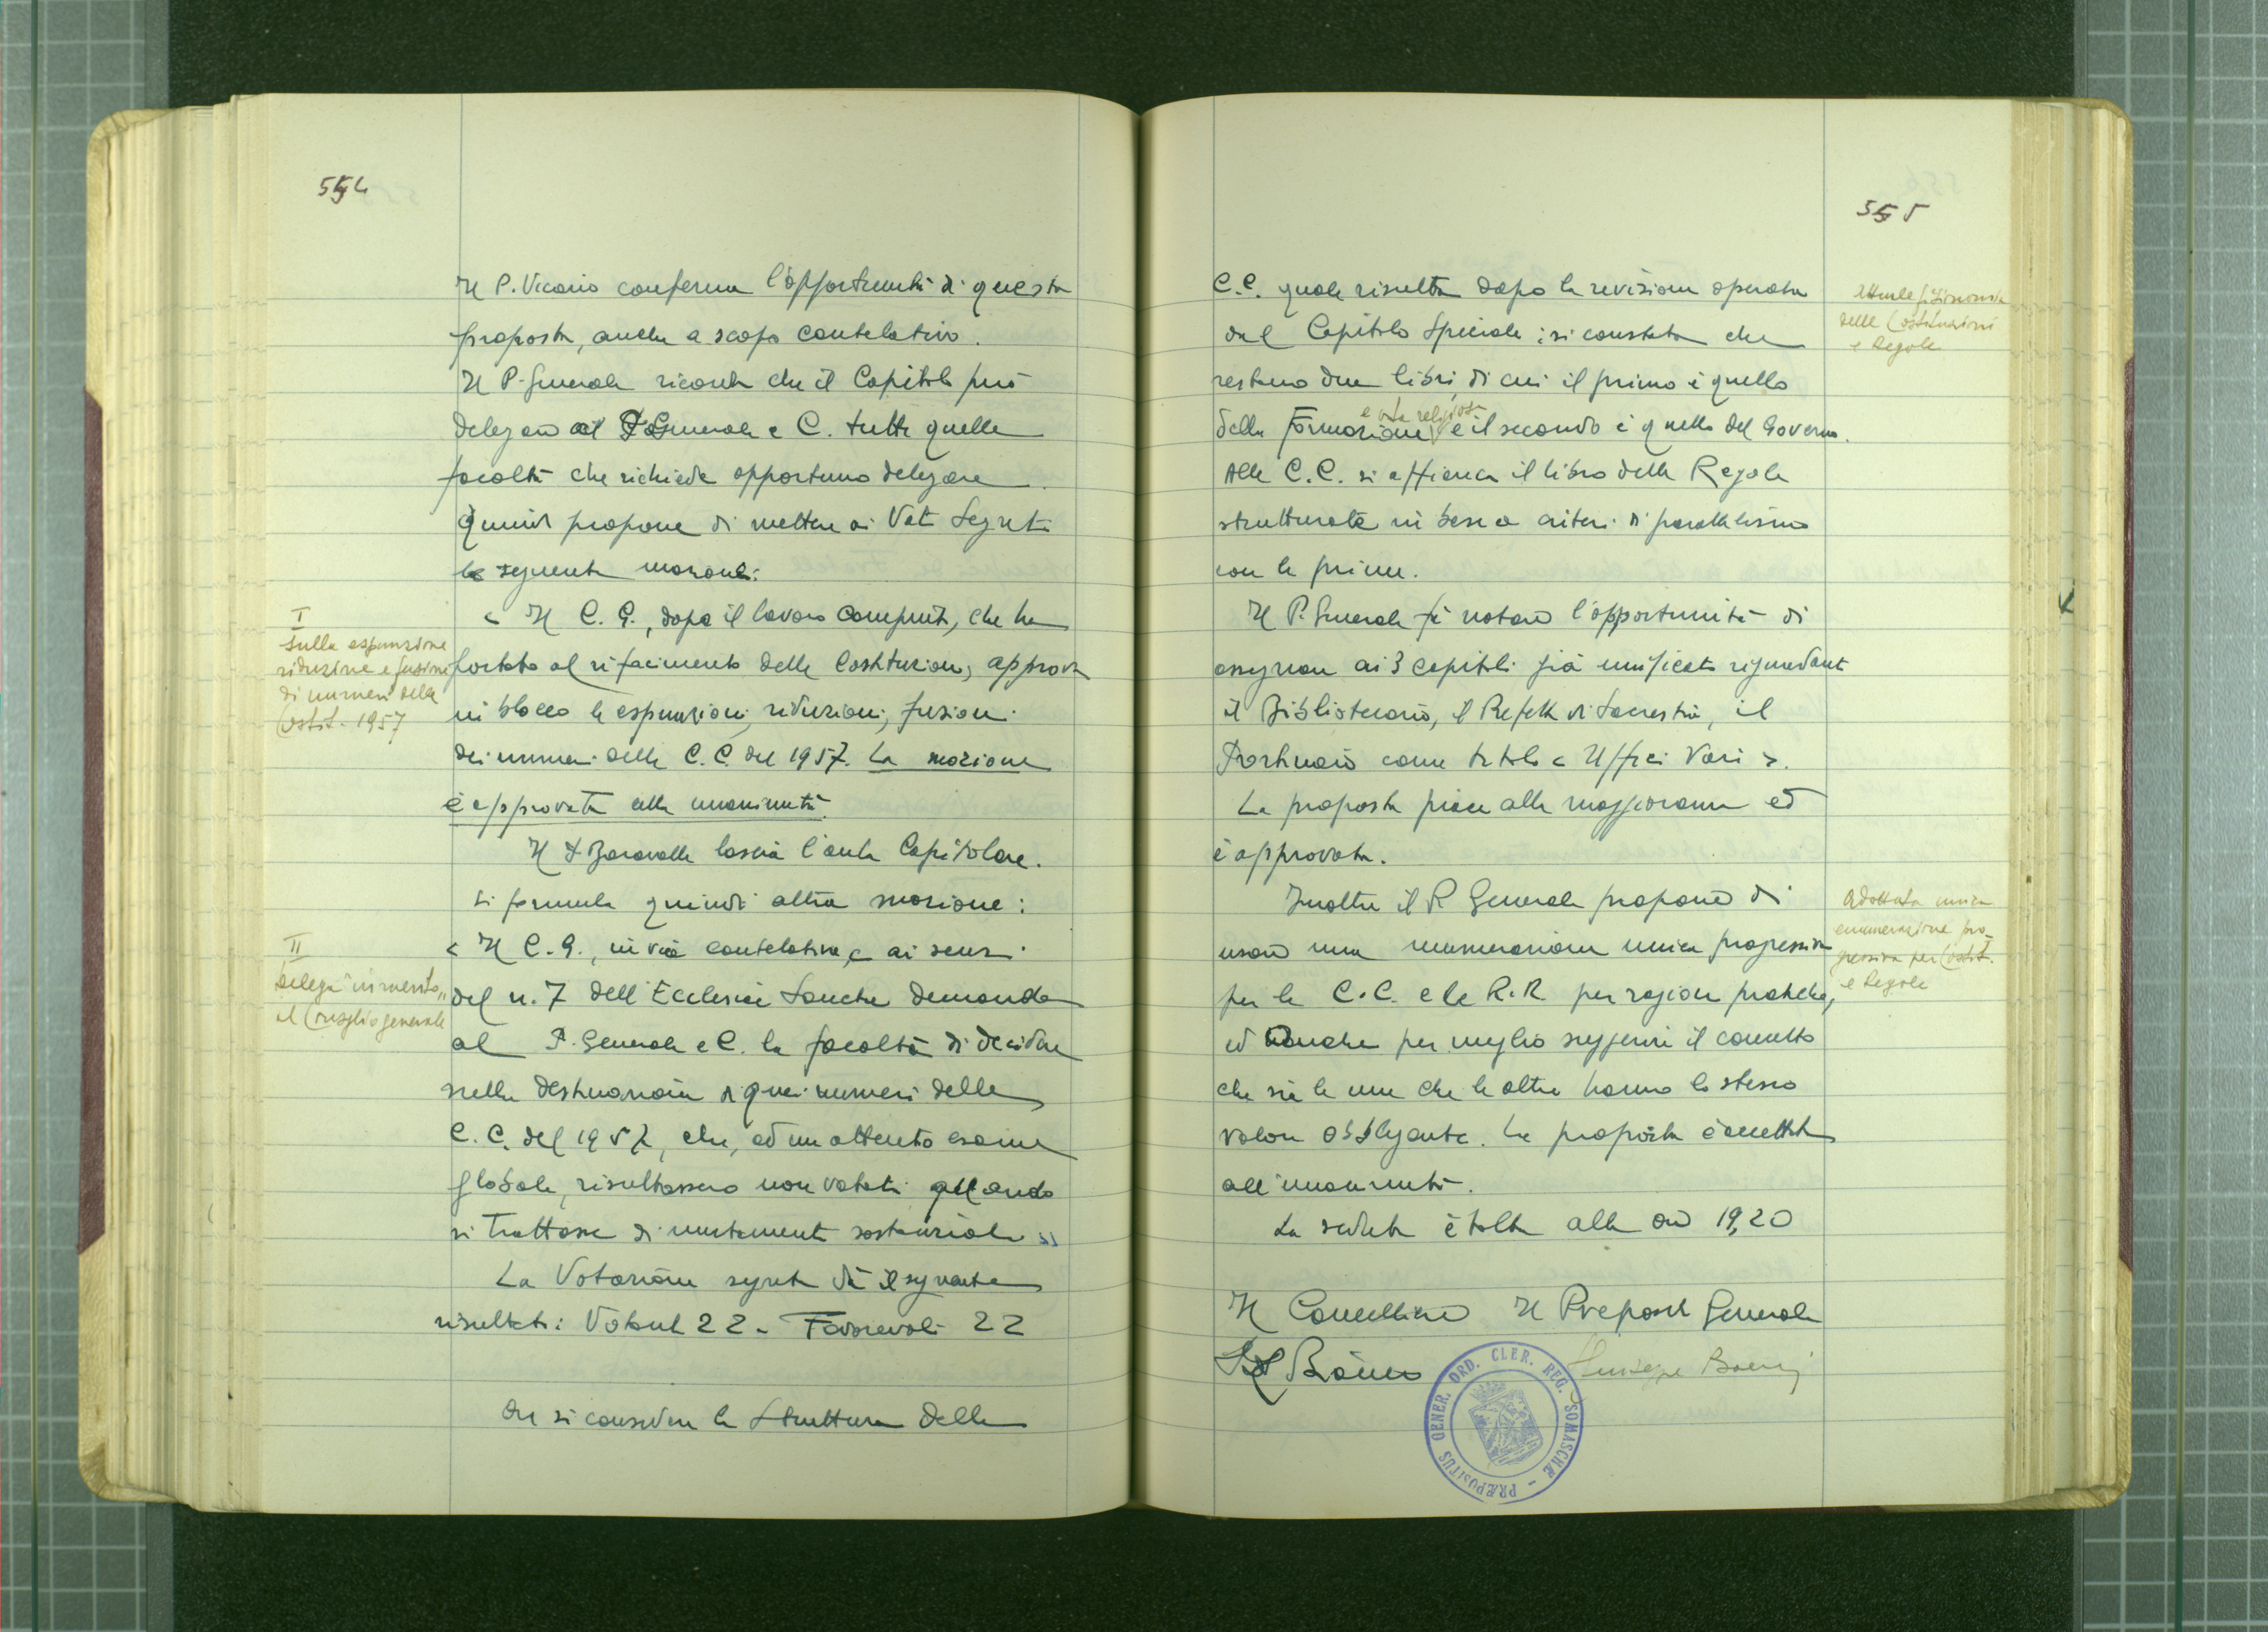 554
Il P. Vicario conferma l'opportunità di questa
proposta, anche a scopo cautelativo.
Il P. Generale ricorda che il Capitolo può
delegare al P. Generale e C. tutte quelle
facoltà che richiede opportuno delegare.
Quindi propone di mettere ai Voti Segreti
la seguente mozione:
I
Sulla espunzione
riduzione e fusione
di numeri delle
Costit. 1957
« Il C. G., dopo il lavoro compiuto, che ha
portato al rifacimento delle Costituzioni, approva
in blocco le espunzioni, riduzioni, fusioni
dei numeri delle C.C. del 1957. La mozione
è approvata alla unanimità.
Il P. Baravalle lascia l'aula Capitolare.
Si formula quindi altra mozione:
II
Delega in merito
al Consiglio generale
« Il C. G., in via cautelativa, e ai sensi
del n. 7 dell'Ecclesiae Sanctae demanda
al P. Generale e C. la facoltà di decidere
nella destinazione di quei numeri delle
C.C. del 1957, che, ad un attento esame
globale, risultassero non votati quando
si trattasse di mutamenti sostanziali »
La Votazione segreta dà il seguente
risultato: Votanti 22 - Favorevoli 22
Ora si considera la struttura delle
555
C.C. quale risulta dopo la revisione operata
dal Capitolo Speciale; si constata che
restano due libri, di cui il primo è quello
della Formazione e vita religiosa e il secondo è quello del Governo.
Alle C.C. si affianca il libro delle Regole
strutturate in base a criteri di parallelismo
con le prime.
Attuale fisionomia
delle Costituzioni
e Regole
Il P. Generale fa notare l'opportunità di
assegnare ai 3 capitoli già unificati riguardanti
il Bibliotecario, il Prefetto di Sacrestia, il
Portinaio come titolo « Uffici Vari ».
La proposta piace alla maggioranza ed
è approvata.
Inoltre il P. Generale propone di
usare una numerazione unica progressiva
per le C.C. e le R.R. per ragioni pratiche,
ed anche per meglio suggerire il concetto
che sia le une che le altre hanno lo stesso
valore obbligante. La proposta è accettata
all'unanimità.
Adottata unica
enumerazione pro-
gressiva per Costit.
e Regole
La seduta è tolta alle ore 19,20
Il Cancelliere Il Preposito Generale
Giuseppe
PRÆPOSITUS GENER. ORD. CLER. REG. SOMASCHÆ